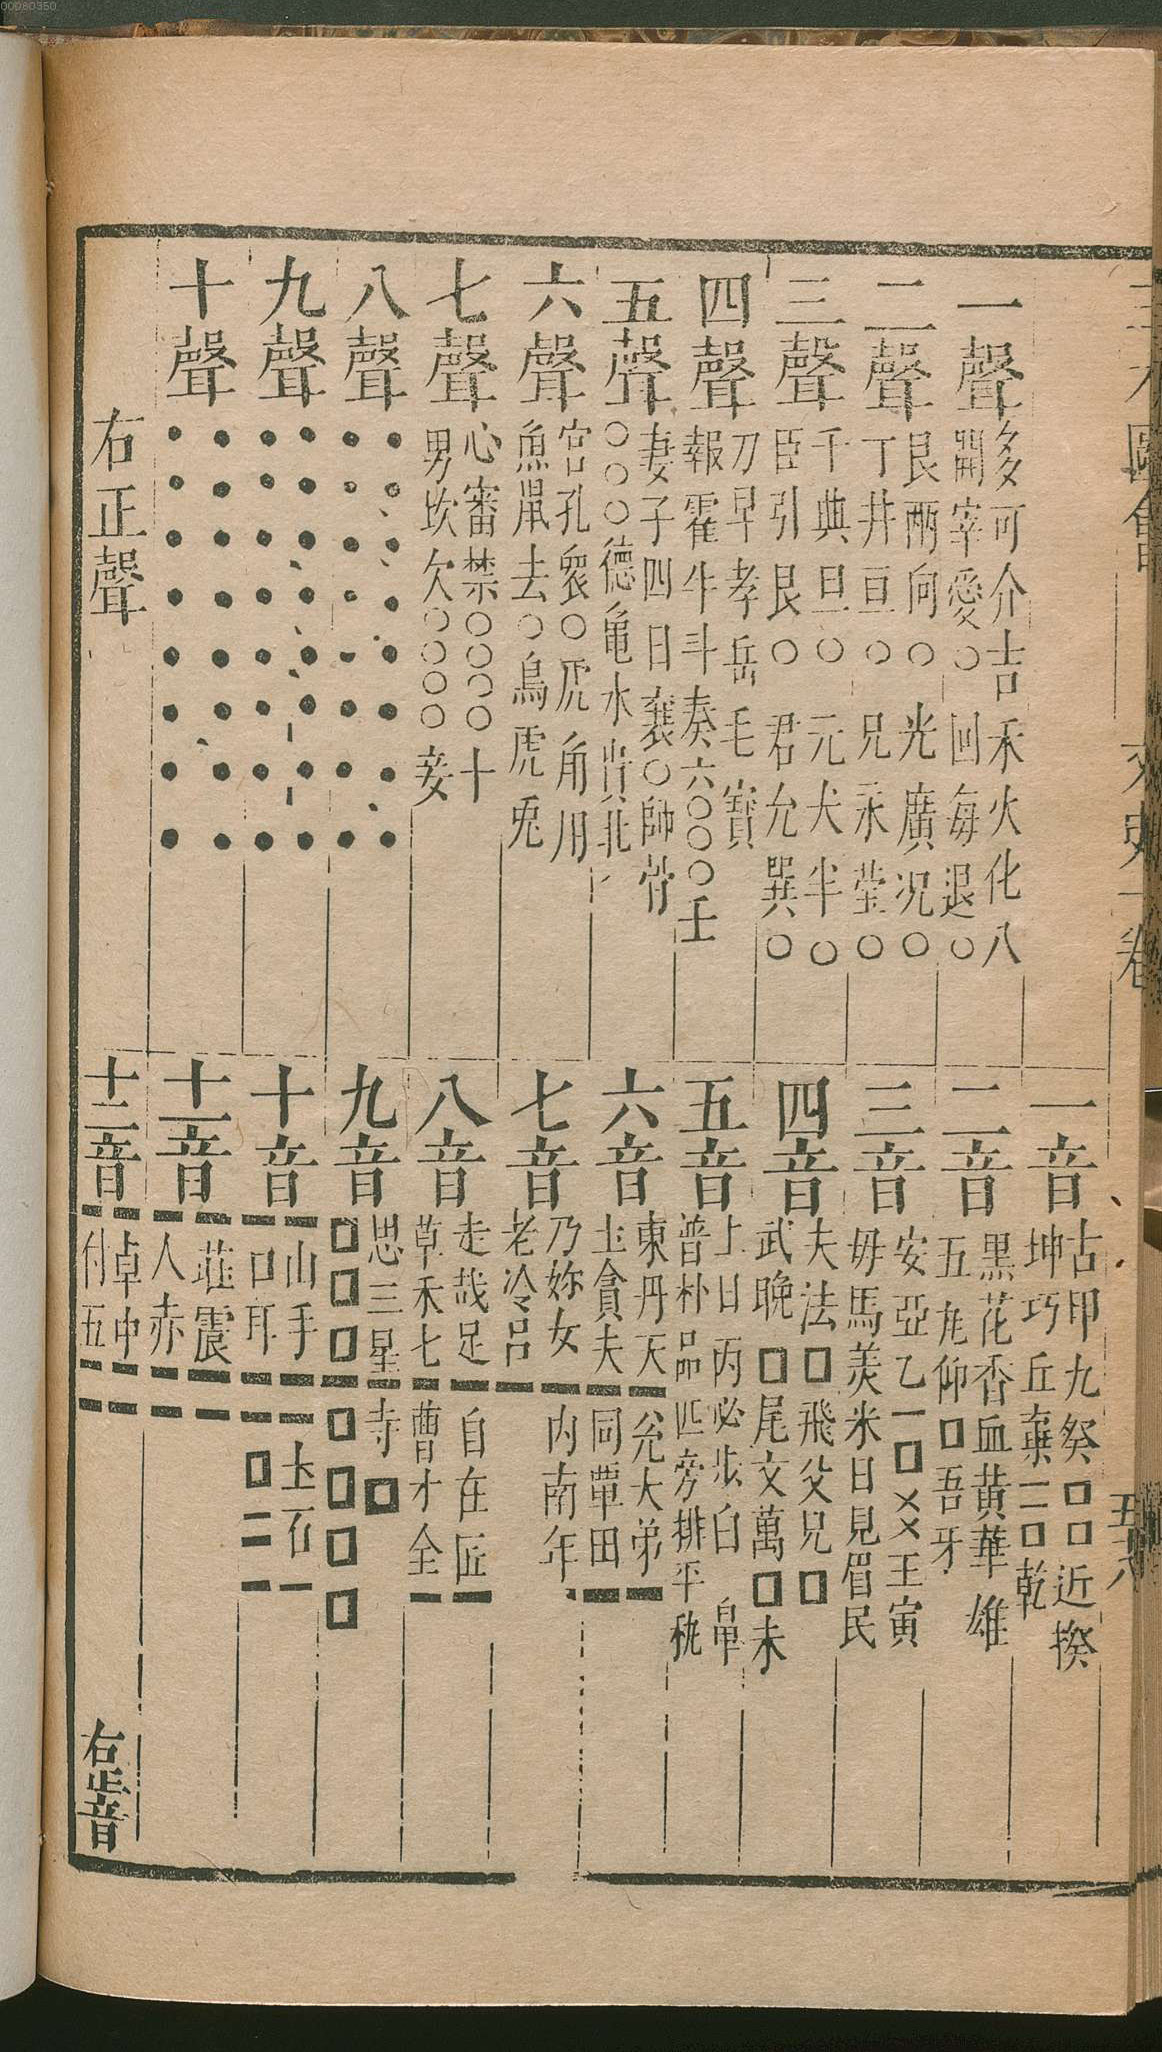 一聲
多可介吉禾火化八
開宰愛○回每退○
二聲
良兩向○光廣况○
丁井亘○兄永瑩○
三聲
千典旦○元犬半○
臣引艮○君允巽○
四聲
刀早孝岳毛寶
報霍牛斗奏六○○○玉
五聲
妻子四日衰○帥骨
○○○德龜水貴北
六聲
宮孔衆○虎角用
魚鼠去○烏虎兎
七聲
心審禁○○○○十
男坎欠○○○○妾
八聲
●●●●●●●●
●●●●●●●●
九聲
●●●●●●●●
●●●●●●●●
十聲
●●●●●●●●
●●●●●●●●
右正聲
一音
古甲九癸□□近揆
坤巧丘棄二□乾
二音
黑花香血黃華雄
五仰□吾牙
三音
安亞乙一□王寅
毋馬美米目見眉民
四音
夫法□飛父兄□
武晚□尾文萬□未
五音
卜日丙必步白
普朴品匹旁排平
六音
東丹天兌大弟
土貪夫同覃田
七音
乃妳女内南年
老冷呂
八音
走哉足自在匠
草禾七曹才全
九音
思三星寺□
□□□□□□□
十音
山手士石
口耳□二
十一音
莊震
人赤
十二音
卓中
五
右正音